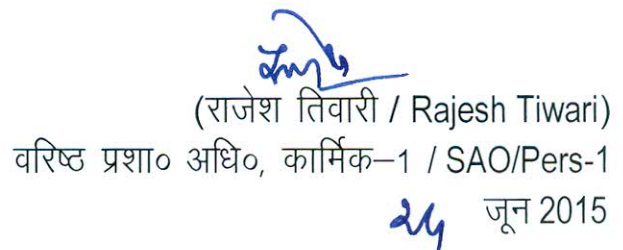 (राजेश तिवारी / Rajesh Tiwari)
वरिष्ठ प्रशा० अधि०, कार्मिक–1 / SAO/Pers-1
जून 2015